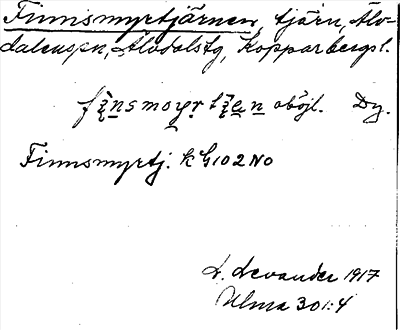 Finnsmyrtjärnen, tjärn, Älv-
dalens sn, Älvdals tg, Kopparbergs l.
oböjl. Dy.
Finnsmyrtj. k G102NO
L. Levander 1917
Ulma 301:4